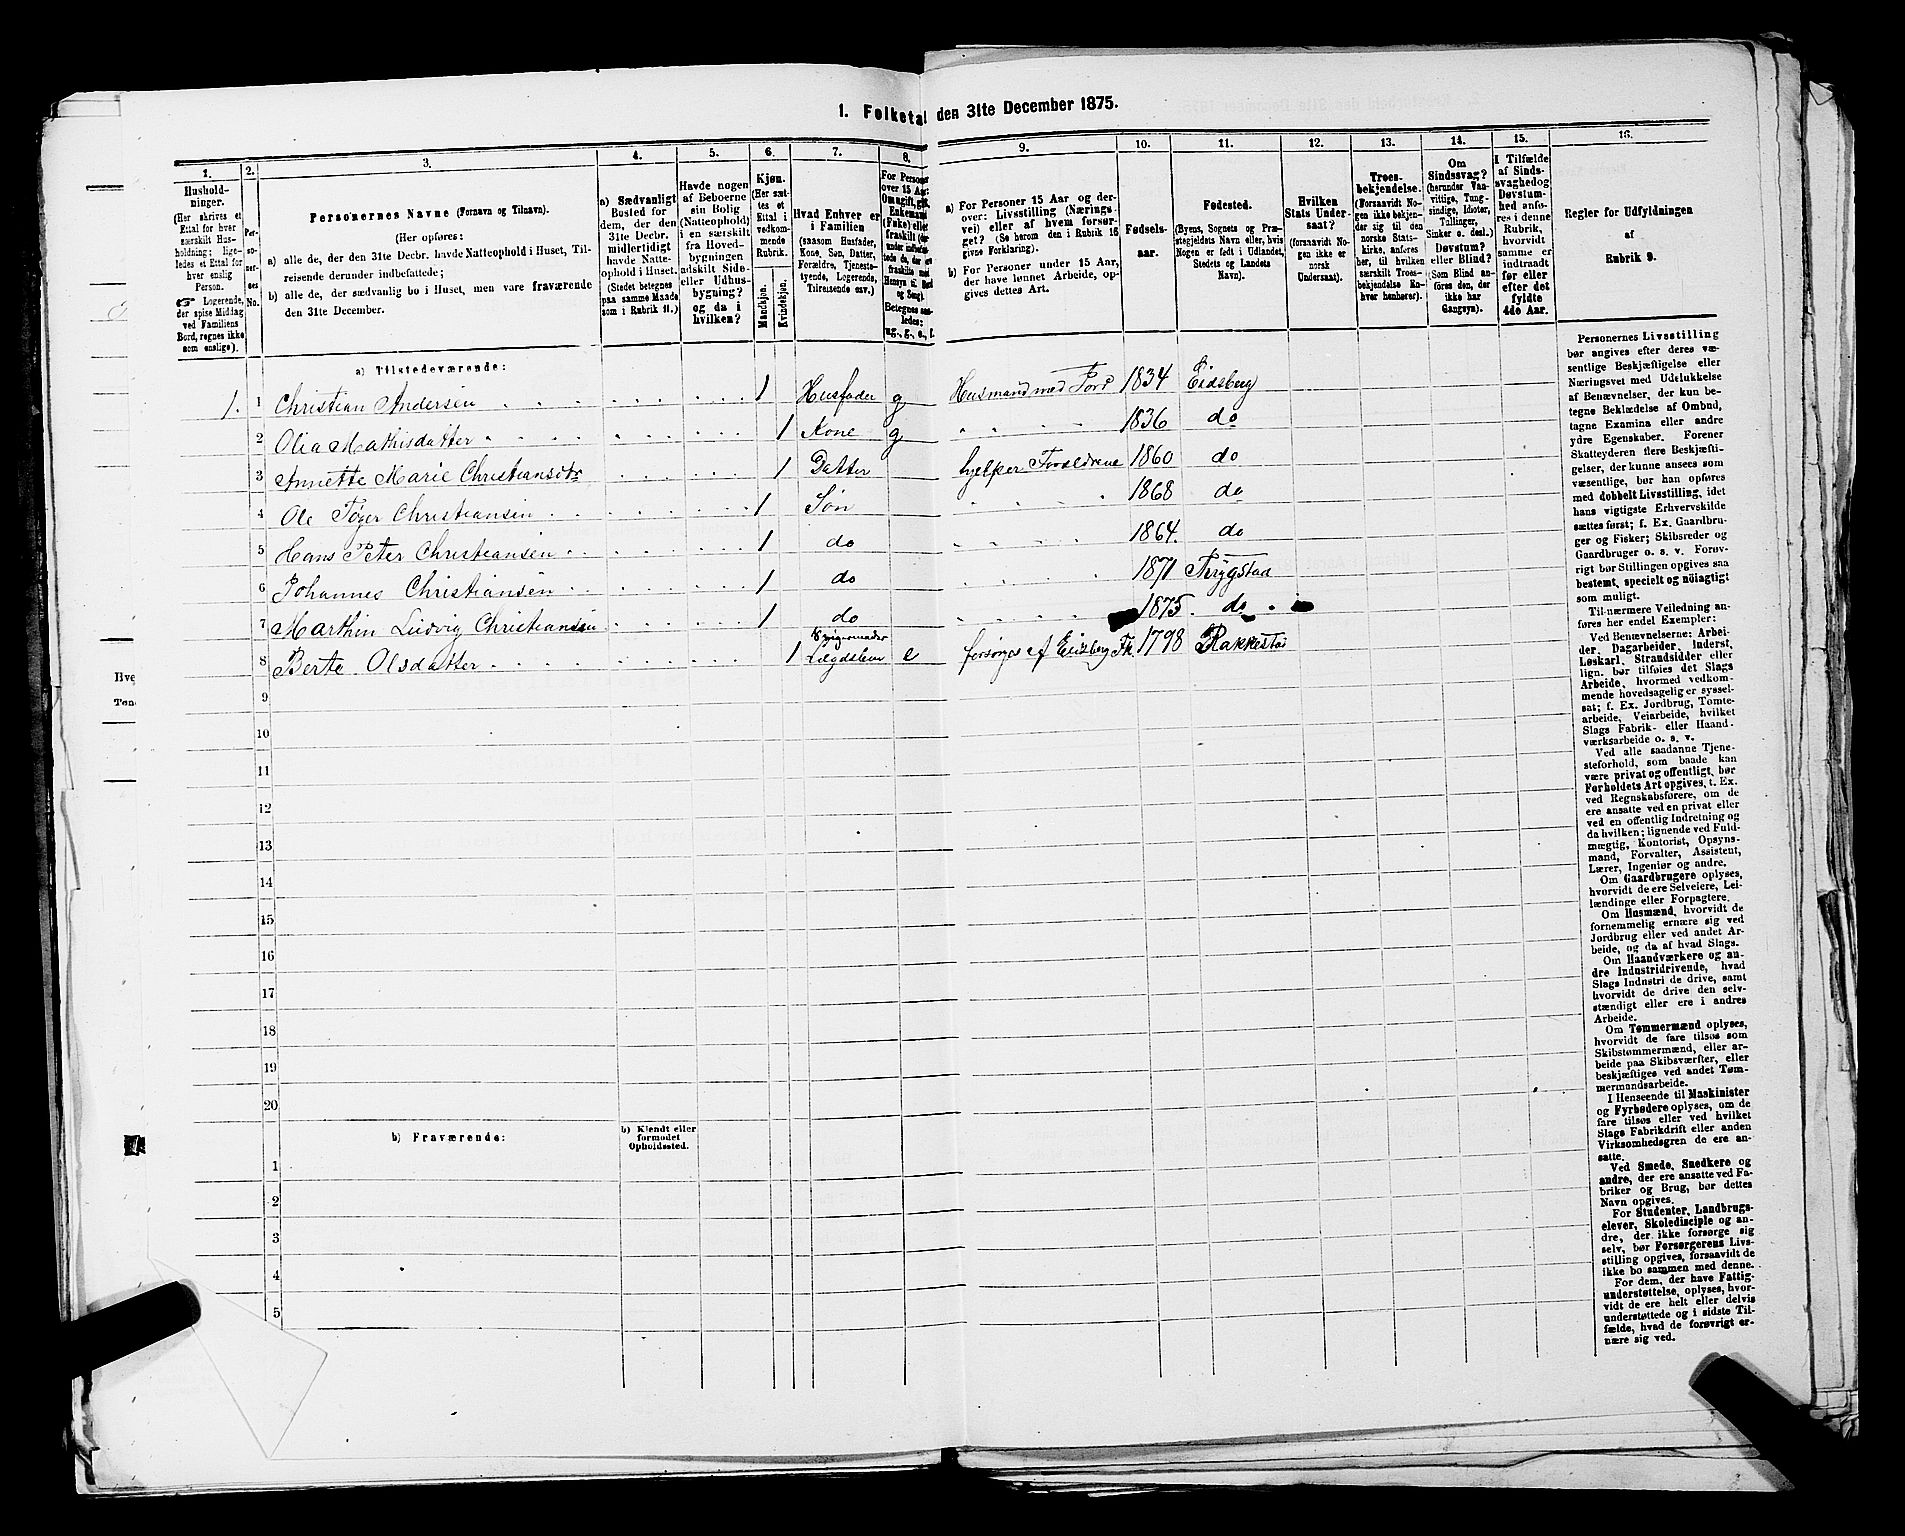 1. Folketal den 31te December 1875.
1. 2. 3. 4. 5. 6. 7. 8. 9. 10. 11. 12. 13. 14. 15. 16.
Hushold-
ninger.
(Her skrives et
Ettal for hver
særskilt Hus-
holdning; lige-
ledes et Ettal for
hver enslig
Person.
☞ Logerende,
der spise Middag
ved Familiens
Bord, regnes ikke
som enslige).
Per-
so-
ner-
nes
No.
Personernes Navne (Fornavn og Tilnavn).
(Her opføres:
a) alle de, der den 31te Decbr. havde Natteophold i Huset, Til-
reisende derunder indbefattede;
b) alle de, der sædvanlig bo i Huset, men vare fraværende
den 31te December.
a) Sædvanligt
Bosted for
dem, der den
31te Decbr.
midlertidigt
havde Natte-
ophold i Huset.
(Stedet betegnes
paa samme Maade
som i Rubrik 11.)
Havde nogen
af Beboerne
sin Bolig
(Natteophold)
i en særskilt
fra Hoved-
bygningen
adskilt Side-
eller Udhus-
bygning?
og da i
hvilken?
Kjøn.
(Her sæt-
tes et
Ettal i
vedkom-
mende
Rubrik.
Mandkjøn.
Kvindekjøn.
Hvad Enhver er
i Familien
(saasom Husfader,
Kone, Søn, Datter,
Forældre, Tjeneste-
tyende, Logerende,
Tilreisende osv.)
For Personer
over 15 Aar:
Om ugift, gift,
Enkemand
(Enke) eller
fraskilt
Betegnes saa-
ledes:
ug., g., e., f.
a) For Personer 15 Aar og der-
over: Livsstilling (Nærings-
vei) eller af hvem forsør-
get? (Se herom den i Rubrik 16
givne Forklaring).
b) For Personer under 15 Aar,
der have lønnet Arbeide, op-
gives dettes Art.
Fødsels-
aar.
Fødested.
(Byens, Sognets og Præ-
stegjeldets Navn eller, hvis
Nogen er født i Udlandet,
Stedets og Landets
Navn).
Hvilken
Stats Under-
saat?
(forsaavidt No-
gen ikke er
norsk
Undersaat).
Troes-
bekjendelse.
(Forsaavidt No-
gen ikke bekjen-
der sig til den
norske Stats-
kirke, anføres
her, til hvilken
særskilt Troes-
bekjendelse En-
hver henhører).
Om
Sindssvag?
(herunder Van-
vittige, Tung-
sindige, Idioter,
Tullinger,
Sinker o. desl.)
Døvstum?
eller Blind?
(Som Blind an-
føres den, der
ikke har
Gangsyn).
I Tilfælde
af Sinds-
svaghed og
Døvstum-
hed anfø-
res i denne
Rubrik,
hvorvidt
samme er
indtraadt
før eller
efter det
fyldte
4de Aar.
Regler for Udfyldningen
af
Rubrik 9.
a) Tilstedeværende:
1. 1 Christian Andersen 1 Husfader g Husmand med Jord 1834 Eidsberg
2 Olia Mathisdatter 1 Kone g 1836 do
3 Annette Marie Christiansdtr 1 Datter hjelper Forældrene 1860 do
4 Ole Tøger Christiansen 1 Søn 1868 do
5 Hans Peter Christiansen 1 do 1864. do
6 Johannes Christiansen 1 do 1871 Thrygstad
7 Marthin Ludvig Christiansen 1 do 1875. do
8 Berte Olsdatter 1 Lægdslem e forsørges af Eidsberg Fk 1798 Rakkestad
9
10
11
12
13
14
15
16
17
18
19
20
b) Fraværende:
b) Kjendt eller
formodet
Opholdssted.
1
2
3
4
5
Personernes Livsstilling
bør angives efter deres væ-
sentlige Beskjæftigelse eller
Næringsvei med Udelukkelse
af Benævnelser, der kun be-
tegne Beklædelse af Ombud,
tagne Examina eller andre
ydre Egenskaber. Forener
Skatteyderen flere Beskjæfti-
gelser, der kunne ansees som
væsentlige, bør han opføres
med dobbelt Livsstilling, idet
hans vigtigste Erhvervskilde
sættes først; f. Ex. Gaardbru-
ger og Fisker; Skibsreder og
Gaardbruger o. s. v. Forøv-
rigt bør Stillingen opgives saa
bestemt, specielt og nøiagtigt
som muligt.
Til nærmere Veiledning an-
føres her endel Exempler:
Ved Benævnelserne: Arbei-
der, Dagarbeider, Inderst,
Løskarl, Strandsidder eller
lign. bør tilføies det Slags
Arbeide, hvormed vedkom-
mende hovedsagelig er syssel-
sat; f. Ex. Jordbrug, Tomte-
arbeide, Veiarbeide, hvilket
Slags Fabrik- eller Haand-
værksarbeide o. s. v.
Ved alle saadanne Tjene-
steforhold, som baade kan
være privat og offentligt, bør
Forholdets Art opgives, t. Ex.
ved Regnskabsførere, om de
ere ansatte ved en privat eller
ved en offentlig Indretning og
da hvilken; lignende ved Fuld-
mægtig, Kontorist, Opsyns-
mand, Forvalter, Assistent,
Lærer, Ingeniør og andre.
Om Gaardbrugere oplyses,
hvorvidt de ere Selveiere, Lei-
lændinge eller Forpagtere.
Om Husmænd, hvorvidt de
fornemmelig ernære sig ved
Jordbrug eller ved andet Ar-
beide, og da af hvad Slags.
Om Haandværkere og an-
dre Industridrivende, hvad
Slags Industri de drive, samt
hvorvidt de drive den selv-
stændigt eller ere i andres
Arbeide.
Om Tømmermænd oplyses,
hvorvidt de fare tilsøs som
Skibstømmermænd, eller ar-
beide paa Skibsværfter, eller
beskjæftiges ved andet Tøm-
mermandsarbeide.
I Henseende til Maskinister
og Fyrbødere oplyses, om de
fare tilsøs eller ved hvilket
Slags Fabrikdrift eller anden
Virksomhedsgren de ere an-
satte.
Ved Smede, Snedkere og
andre, der ere ansatte ved Fa-
briker og Brug, bør dettes
Navn opgives.
For Studenter, Landbrugs-
elever, Skoledisciple og an-
dre, der ikke forsørge sig
selv, bør Forsørgerens Livs-
stilling opgives, forsaavidt de
ikke bo sammen med denne.
For dem, der have Fattig-
understøttelse, oplyses, hvor-
vidt de ere helt eller delvis
understøttede og i sidste Til-
fælde, hvad de forøvrigt er-
nære sig ved.